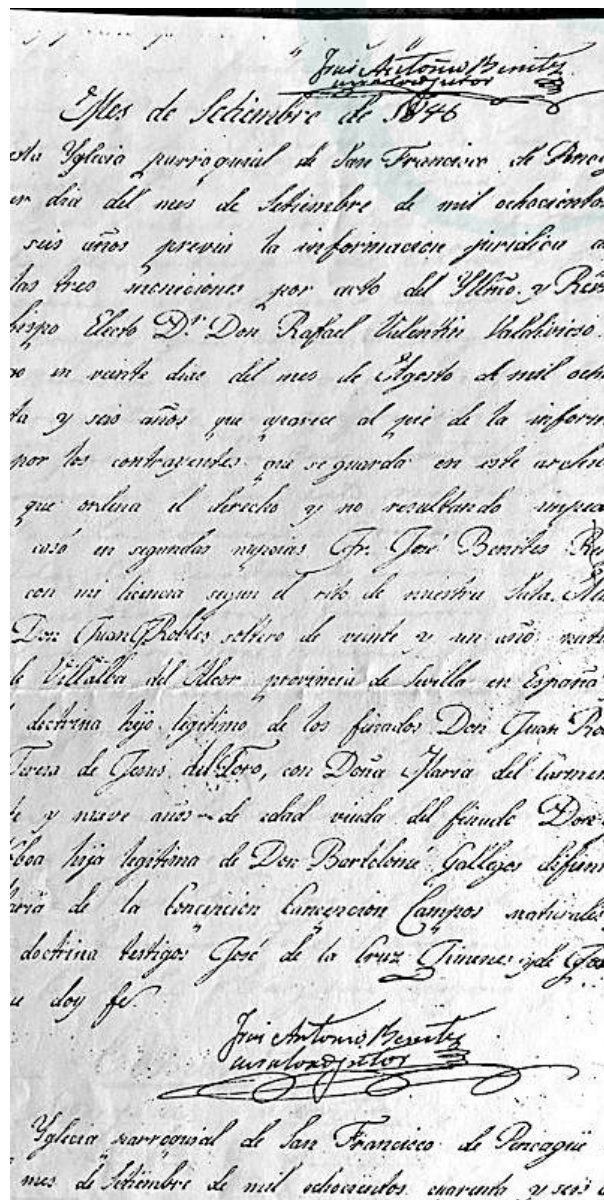 Frai Antonio Benitez
curacoadjutor
Mes de Setiembre de 1846
esta Yglecia parroquial de San Francisco de Penca
er dia del mes de Setiembre de mil ochocientos
seis años previa la informacion juridica
las tres moniciones por acto del Yllmo. y
bispo Electo Dr. Don Rafael Valentin Valdivieso
en veinte dias del mes de Agosto de mil ocho
ta y seis años que aparece al pie de la inform
por los contrayentes que se guarda en este archi
que ordena el derecho y no resultando impe
casó en segundas nupcias Fr. José Benites
con mi licencia segun el rito de nuestra Sta.
Don Juan Robles soltero de veinte y un año natu
de Villalba del Alcor provincia de Sevilla en España
doctrina hijo legitimo de los finados Don Juan Ro
Teresa de Jesus del Toro, con Doña Maria del Carmen
te y nueve años de edad viuda del finado Don
boa hija legitima de Don Bartolomé Gallegos difun
aria de la Concincion Concencion Campos naturales
doctrina testigos José de la Cruz Gimenes y de José
e doy fe
Frai Antonio Benitez
curacoadjutor
Yglecia parroquial de San Francisco de Pencagüe
mes de Setiembre de mil ochocientos cuarenta y seis